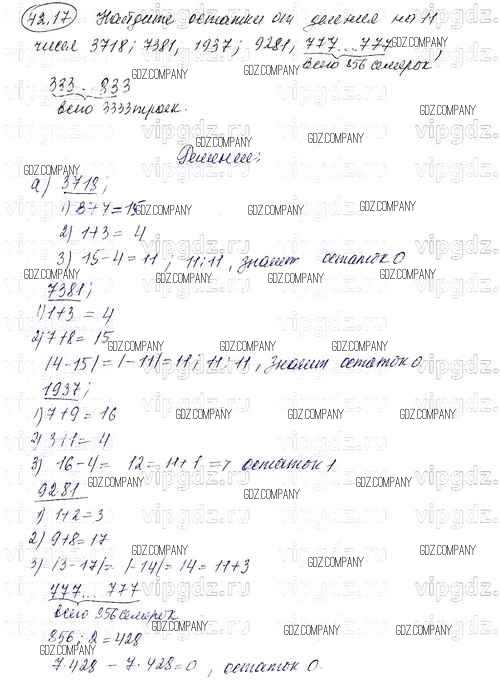 42.17 Найдите остатки от деления на 11
чисел 3718; 7381, 1937; 9281, 777...777,
всего 856 семерок
333...333
всего 3333 троек.
Решение:
а) 3718;
1) 8+7=15
2) 1+3=4
3) 15-4=11; 11:11, значит остаток 0
7381;
1) 1+3=4
2) 7+8=15
|4-15|=|-11|=11; 11:11, значит остаток 0
1937;
1) 7+9=16
2) 3+1=4
3) 16-4=12=11+1 => остаток 1
9281
1) 1+2=3
2) 9+8=17
3) |3-17|=|-14|=14=11+3
777...777
всего 856 семерок
856:2=428
7·428-7·428=0, остаток 0.
GDZ.COMPANY
vipgdz.ru